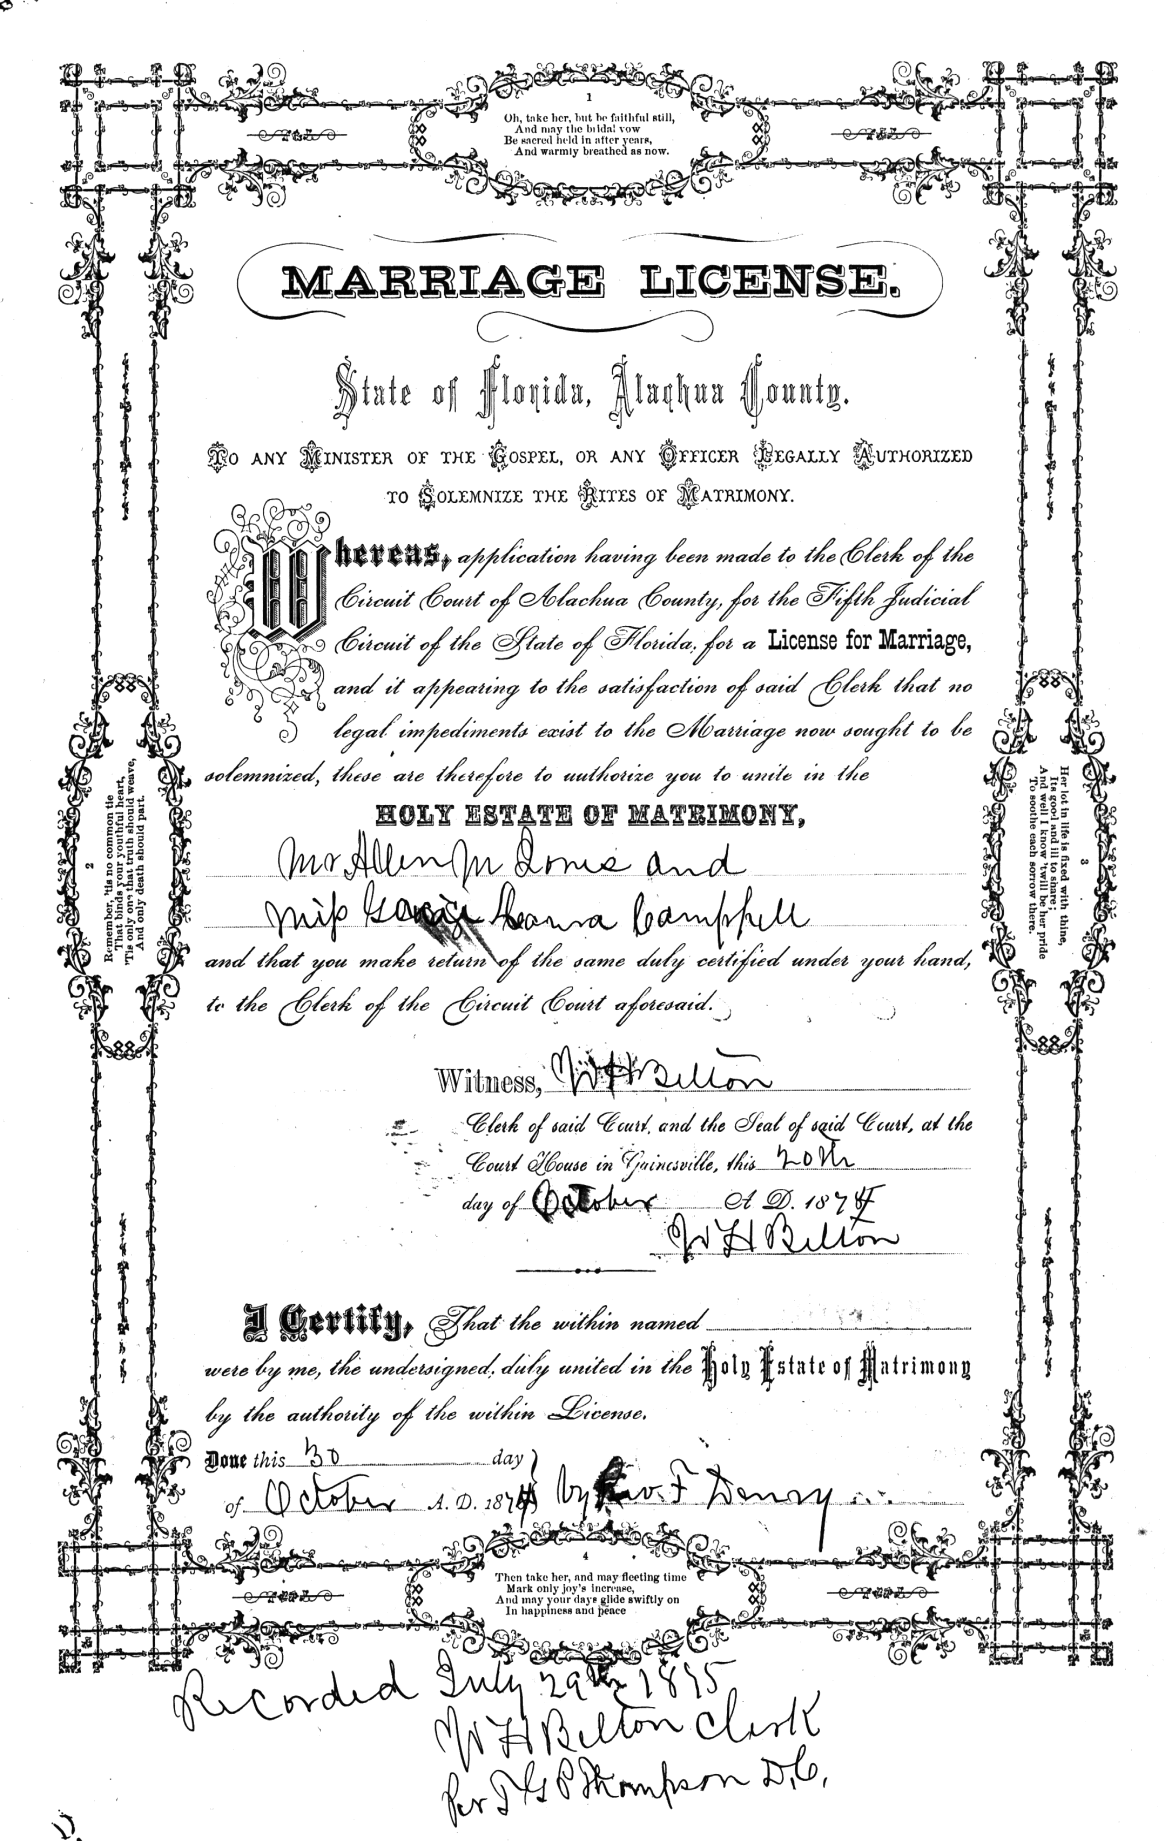 1
Oh, take her, but be faithful still,
And may the bridal vow
Be sacred held in after years,
And warmly breathed as now.
MARRIAGE LICENSE.
State of Florida, Alachua County.
TO ANY MINISTER OF THE GOSPEL, OR ANY OFFICER LEGALLY AUTHORIZED
TO SOLEMNIZE THE RITES OF MATRIMONY.
Whereas, application having been made to the Clerk of the
Circuit Court of Alachua County, for the Fifth Judicial
Circuit of the State of Florida, for a License for Marriage,
and it appearing to the satisfaction of said Clerk that no
legal impediments exist to the Marriage now sought to be
solemnized, these are therefore to authorize you to unite in the
HOLY ESTATE OF MATRIMONY,
Mr Allen M Jones and
Miss Campbell
and that you make return of the same duly certified under your hand,
to the Clerk of the Circuit Court aforesaid.
Witness, W H Belton
Clerk of said Court, and the Seal of said Court, at the
Court House in Gainesville, this 20th
day of October A. D. 1874
W H Belton
I Certify, That the within named
were by me, the undersigned, duly united in the Holy Estate of Matrimony
by the authority of the within License.
Done this 30 day
of October A. D. 1874 by Rev. F
2
Remember, 'tis no common tie
That binds your youthful heart,
'Tis only one that truth should weave,
And only death should part.
3
Her lot in life is fixed with thine,
Its good and ill to share;
And well I know 'twill be her pride
To soothe each sorrow there.
4
Then take her, and may fleeting time
Mark only joy's increase,
And may your days glide swiftly on
In happiness and peace
Recorded July 29th 1875
W H Belton Clerk
Per J G P Thompson D.C.